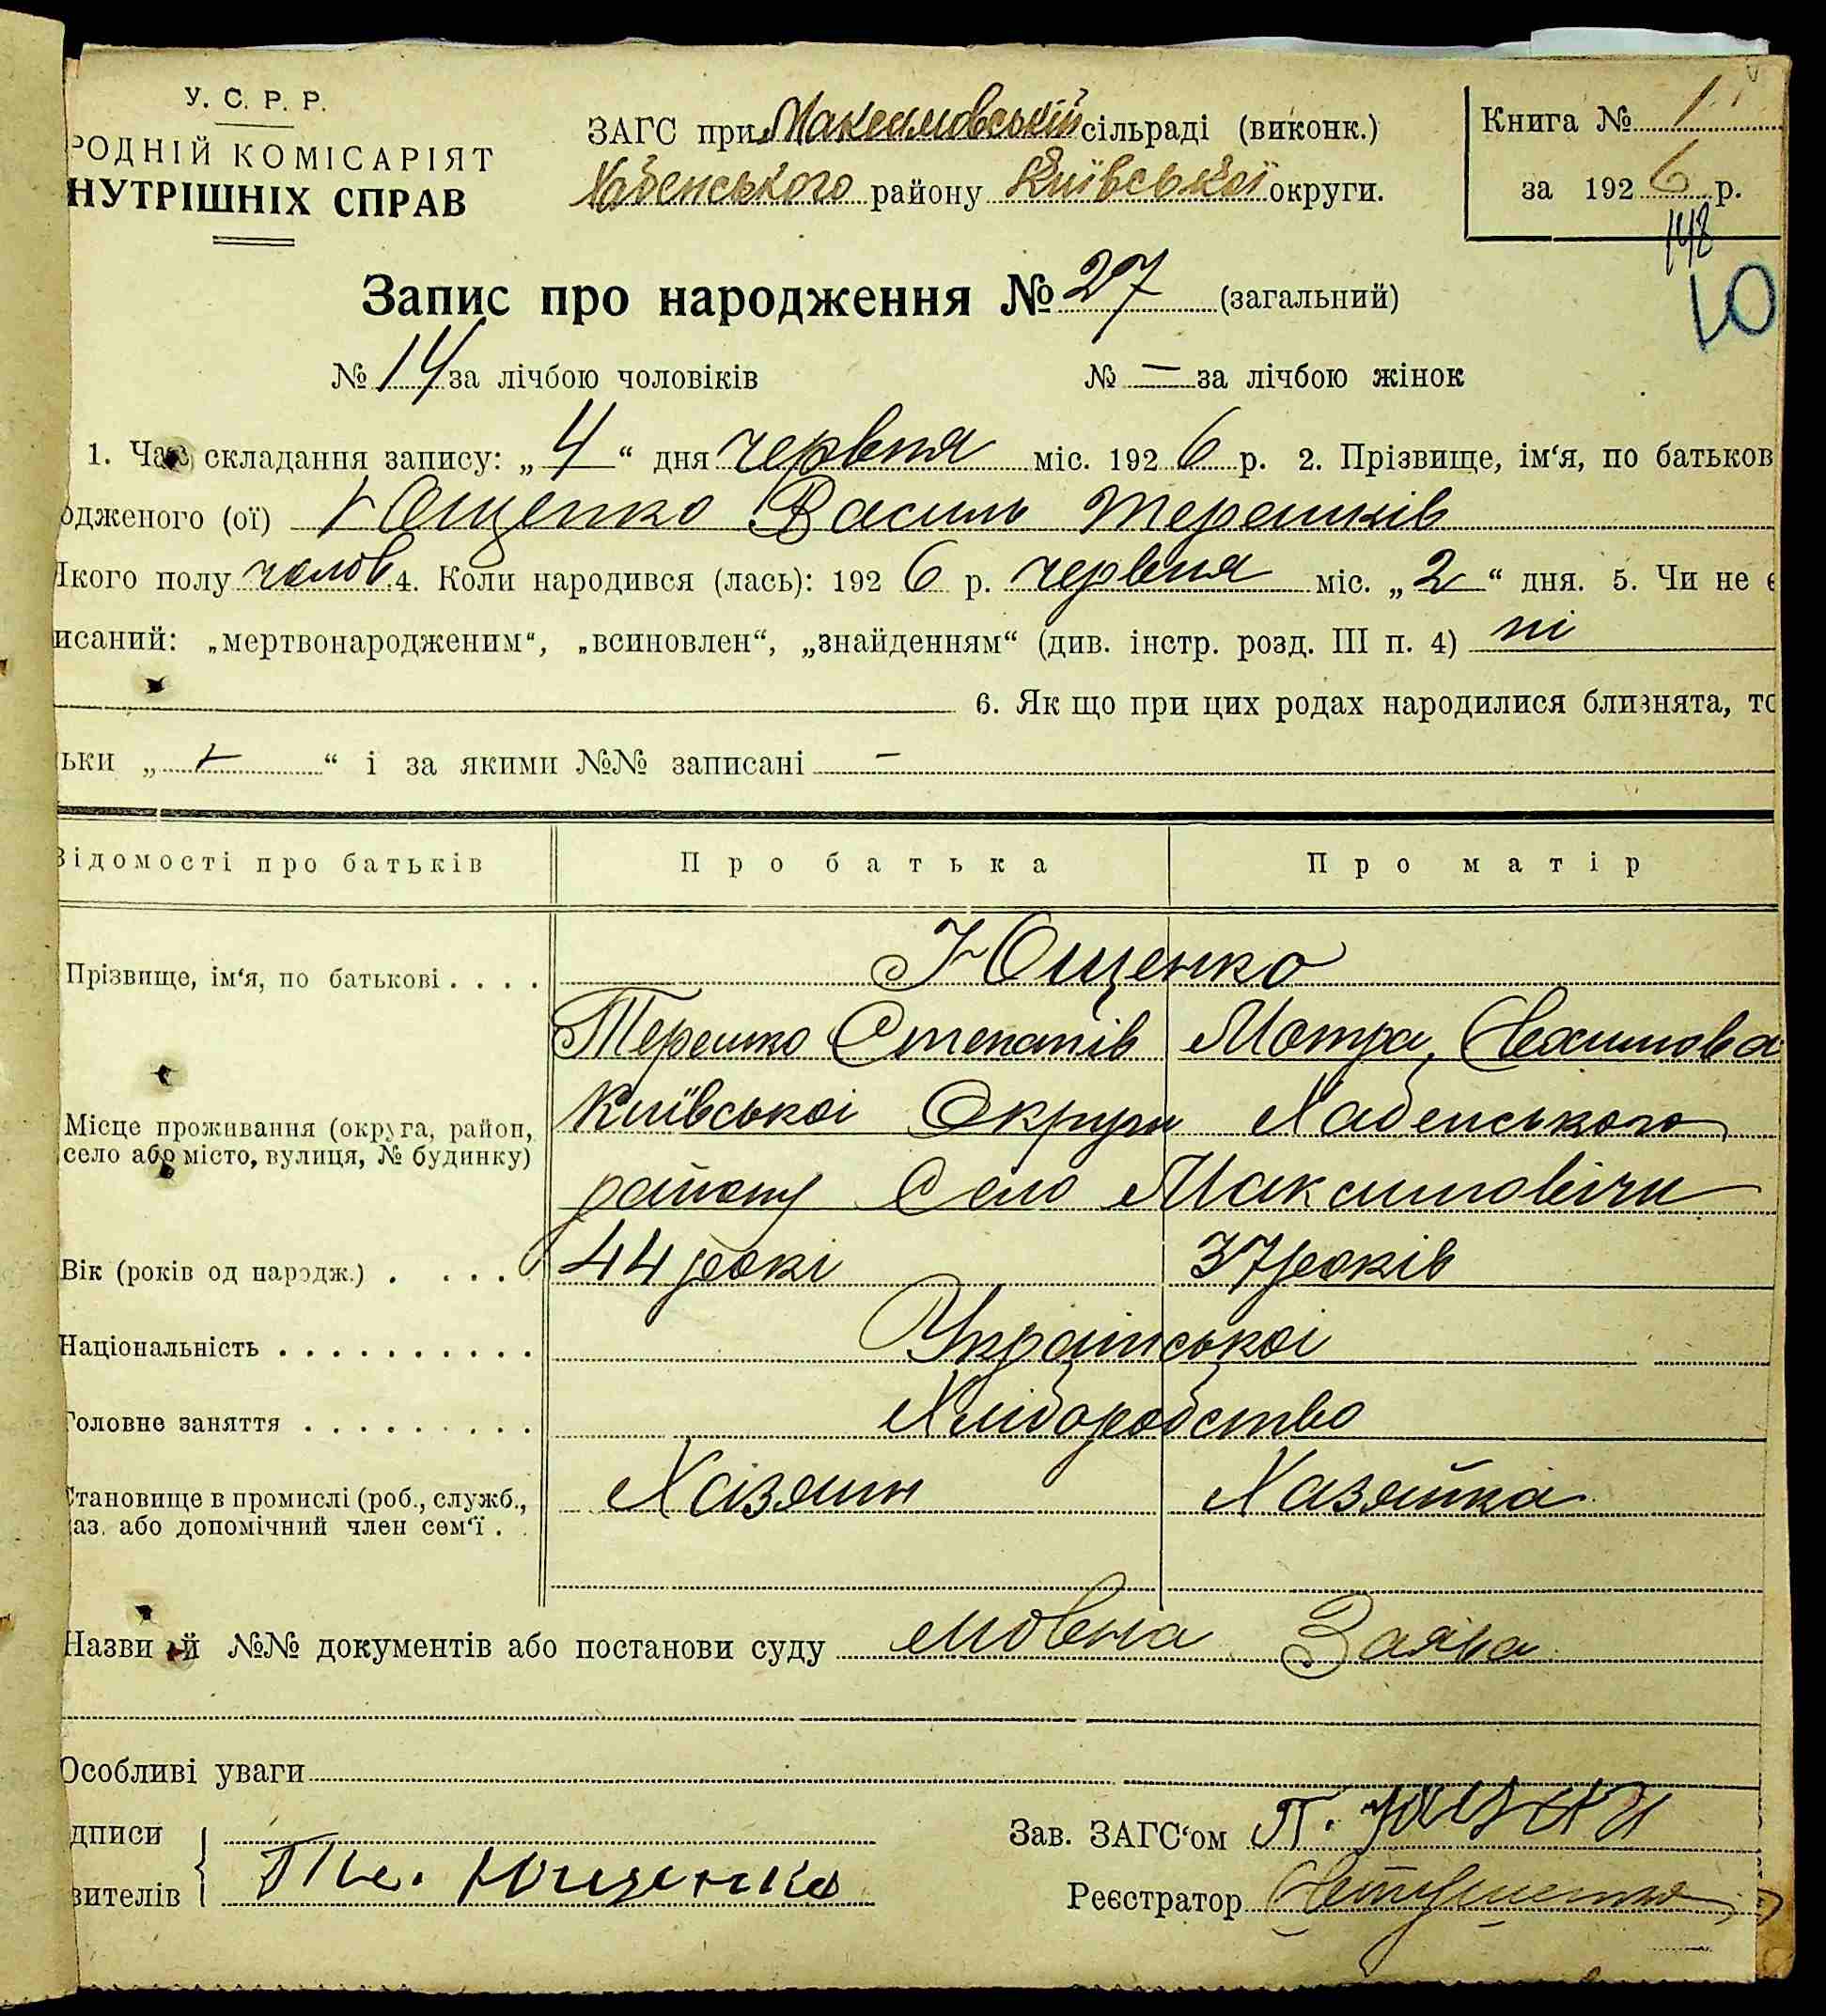 У. С. Р. Р.
РОДНІЙ КОМІСАРІЯТ
НУТРІШНІХ СПРАВ
ЗАГС при Максимовській сільраді (виконк.)
Хабенського району Київської округи.
Книга № 1
за 1926 р.
148
10
Запис про народження № 27 (загальний)
№ 14 за лічбою чоловіків № — за лічбою жінок
1. Час складання запису: „4“ дня червня міс. 1926 р. 2. Прізвище, ім‘я, по батьков
одженого (ої) Ющенко Василь Терешків
Якого полу чолов. 4. Коли народився (лась): 1926 р. червня міс. „2“ дня. 5. Чи не є
исаний: „мертвонародженим“, „всиновлен“, „знайденням“ (див. інстр. розд. III п. 4) ні
6. Як що при цих родах народилися близнята, то
ьки „—“ і за якими №№ записані —
Відомості про батьків Про батька Про матір
Прізвище, ім‘я, по батькові . . . . Ющенко
Терешко Степанів Мотра
Місце проживання (округа, район, село або місто, вулиця, № будинку) Київської Округи Хабенського
району Село Максимовічи
Вік (років од народж.) . . . . . 44 рокі 37 років
Національність . . . . . . . . . . Української
Головне заняття . . . . . . . . . Хліборобство
Становище в промислі (роб., служб., Хазяин Хазяйка
аз. або допомічний член сем‘ї . .
Назви й №№ документів або постанови суду мовна Заява
Особливі уваги
дписи Зав. ЗАГС‘ом П.
вителів Те. Ющенко Реєстратор